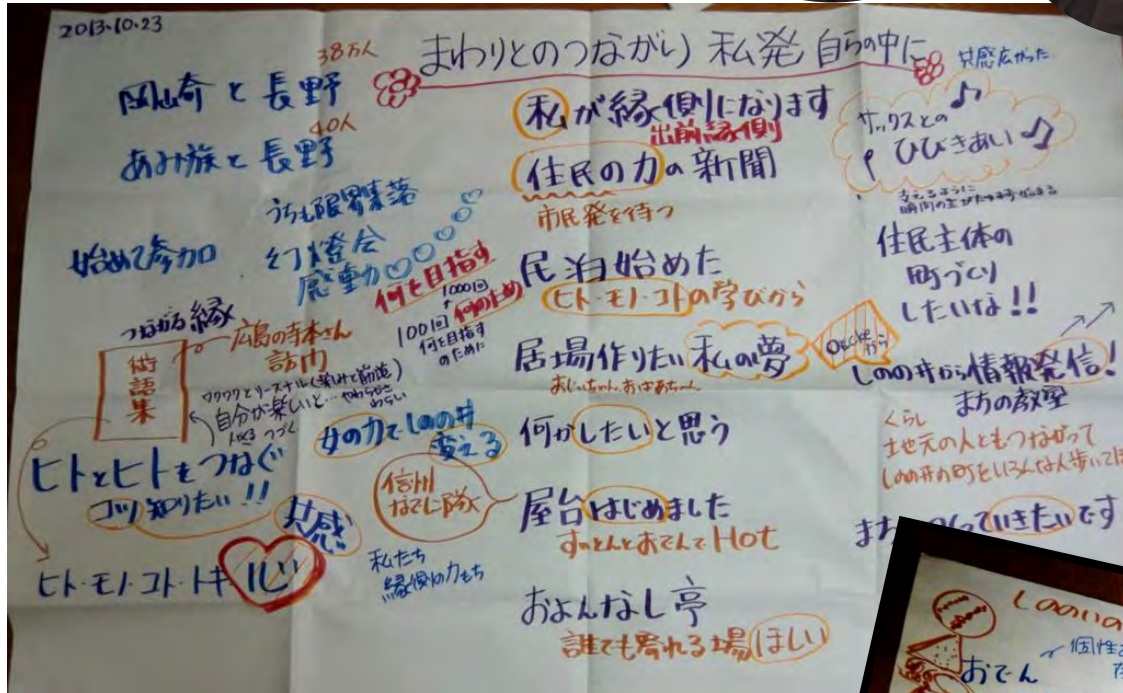 2013.10.23
まわりとのつながり 私発 自らの中に
38万人
岡崎と長野
40人
あみ族と長野
うちも限界集落
始めて参加
幻燈会
感動
何を目指す
1000回
何のため
1001回
何を目指す
のために
つながる縁
術語集
広島の寺本さん
訪問
ワクワクとリースナル(楽しみと筋道)
自分が楽しいと…やわらかさ
わらい
つづく
女の力でしのの井
変える
ヒトとヒトをつなぐ
コツ知りたい!!
共感
ヒト・モノ・コト・トキ 心
信州
なでしこ隊
私たち
縁側の力もち
私が縁側になります
出前縁側
住民の力の新聞
市民発を待つ
民泊始めた
ヒト・モノ・コトの学びから
居場作りたい 私の夢
おじいちゃん、おばあちゃん
何かしたいと思う
屋台はじめました
すっとんとおでんでHot
およんなし亭
誰でも寄れる場ほしい
共感広がった
サックスとの
ひびきあい
支えるように
住民主体の
町づくり
したいな!!
しのの井から情報発信!
まちの教室
くらし
土地元の人ともつながって
しのの井の町をいろんな人歩いてほ
ていきたいです
しののいの
おでん
個性